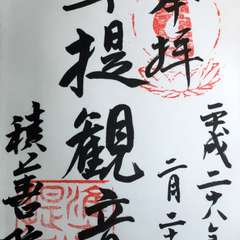 奉拝
平成二十六年
二月二十
準提観音
積善